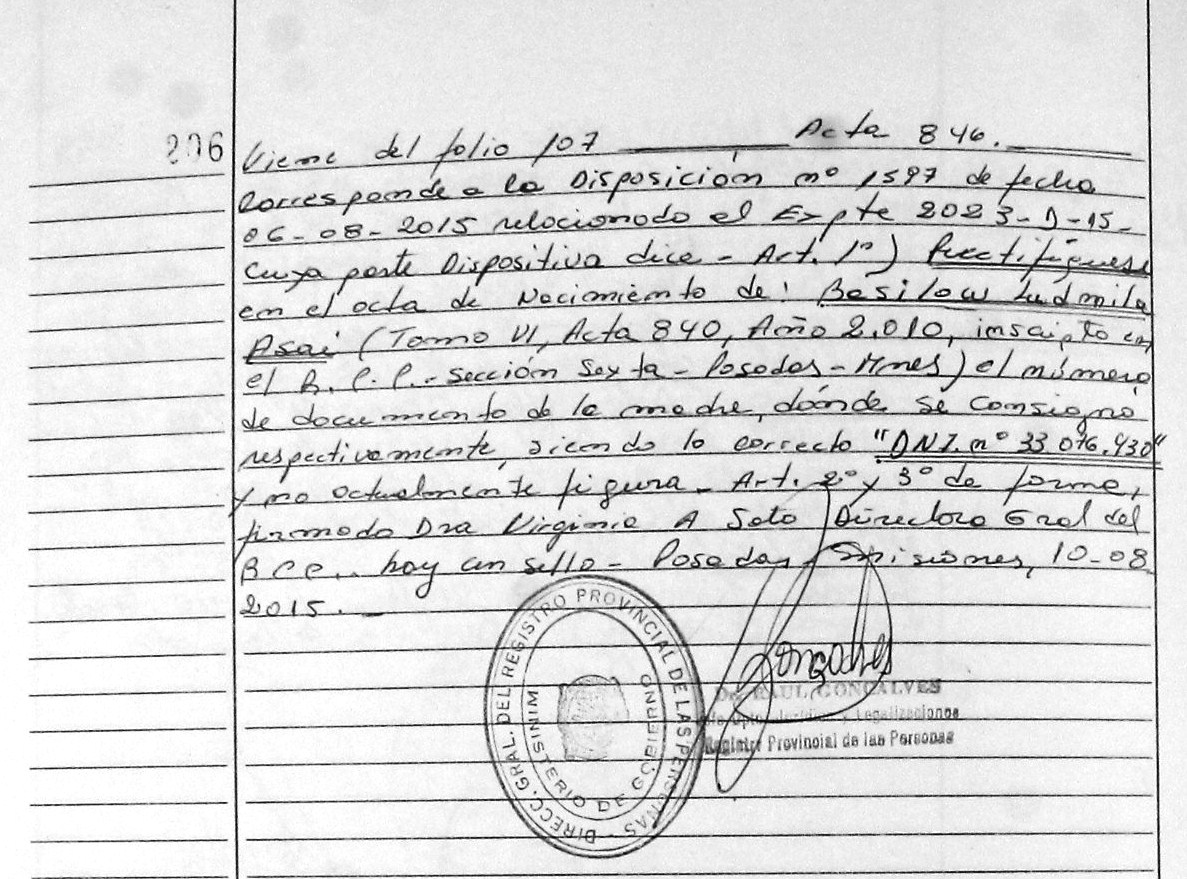 206
Viene del folio 107 Acta 846.
Corresponde a la Disposición nº 1597 de fecha
06-08-2015 relacionado el Expte 2023-D-15-
Cuya parte Dispositiva dice - Art. 1º) Rectifíquese
en el acta de Nacimiento de: Basilow Ludmila
Asai (Tomo VI, Acta 840, Año 2.010, inscipto en
el R. P. P. - Sección Sexta - Posadas - Mnes) el número
de documento de la madre, dónde se consignó
respectivamente, siendo lo correcto "DNI. nº 33.076.930"
y no actualmente figura - Art. 2º y 3º de forma,
firmado Dra Virginia A Soto Directora Gral del
R.P.P.. hay un sello - Posadas, Misiones, 10-08
2015. -
DIRECC. GRAL. DEL REGISTRO PROVINCIAL DE LAS PERSONAS -
MINISTERIO DE GOBIERNO
Gonçalves
Dr. RAUL GONCALVES
Dpto. Jurídico y Legalizaciones
Registro Provincial de las Personas